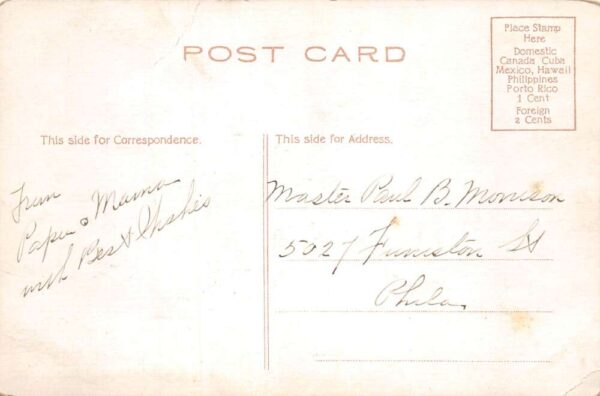 POST CARD
Place Stamp
Here
Domestic
Canada Cuba
Mexico, Hawaii
Philippines
Porto Rico
1 Cent
Foreign
2 Cents
This side for Correspondence.
From
Papa & Mama
with Best Wishes
This side for Address.
Master Paul B. Morrison
5027 Funston St
Phila.